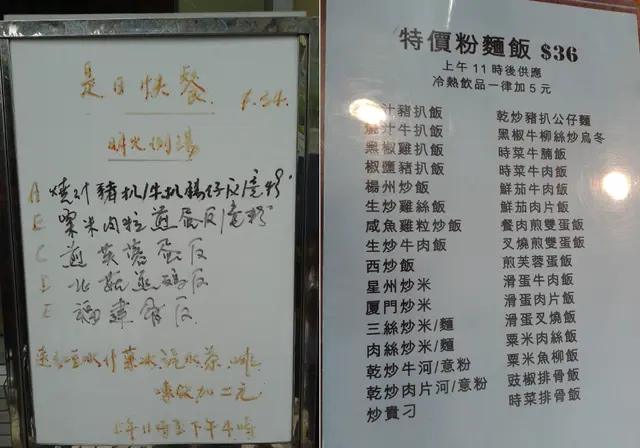 是日快餐
明火例湯
A 燒汁豬扒/牛扒腸仔反/意粉
粟米肉粒煎蛋反/意粉
C 煎芙蓉蛋反
北菇
E 福建
凍飲加二元
上午11時至下午4時
特價粉麵飯 $36
上午11時後供應
冷熱飲品一律加5元
汁豬扒飯
燒汁牛扒飯
黑椒雞扒飯
椒鹽豬扒飯
楊州炒飯
生炒雞絲飯
咸魚雞粒炒飯
生炒牛肉飯
西炒飯
星州炒米
厦門炒米
三絲炒米/麵
肉絲炒米/麵
乾炒牛河/意粉
乾炒肉片河/意粉
炒貴刁
乾炒豬扒公仔麵
黑椒牛柳絲炒烏冬
時菜牛腩飯
時菜牛肉飯
鮮茄牛肉飯
鮮茄肉片飯
餐肉煎雙蛋飯
叉燒煎雙蛋飯
煎芙蓉蛋飯
滑蛋牛肉飯
滑蛋肉片飯
滑蛋叉燒飯
粟米肉絲飯
粟米魚柳飯
豉椒排骨飯
時菜排骨飯